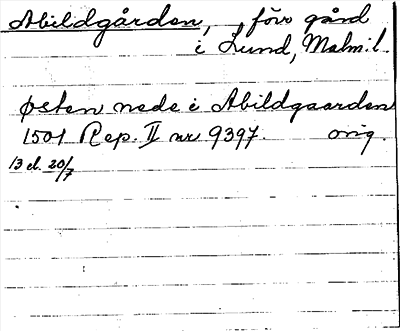 Abildgården, förr gård
i Lund, Malm.l.
Østen nede i Abildgaarden
1501 Rep. II nr 9397. orig.
13 el. 20/7